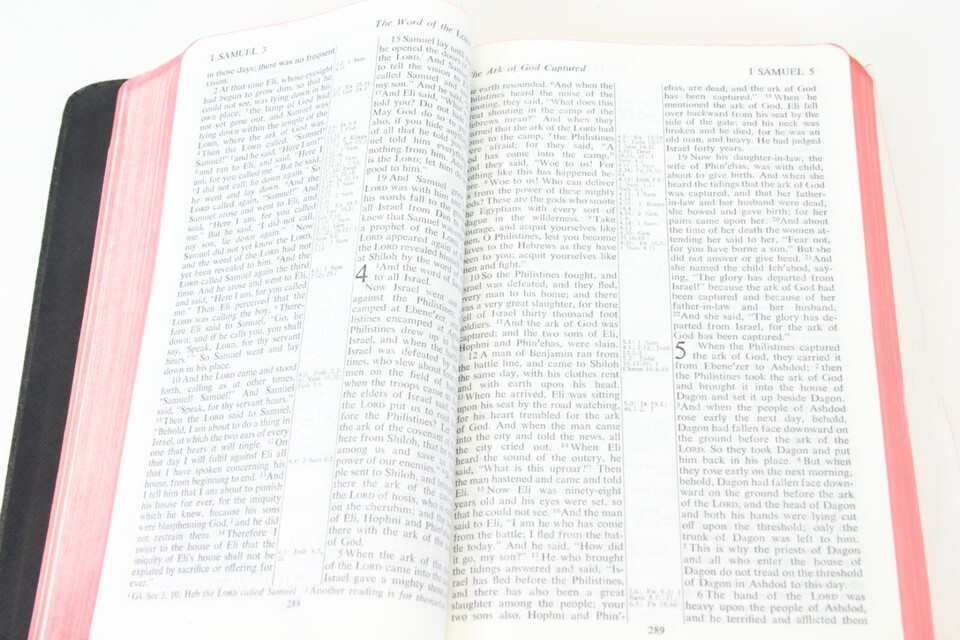 1 SAMUEL 3
The Word of the LORD
in those days; there was no frequent
vision.
2 At that time Eli, whose eyesight
had begun to grow dim, so that he
could not see, was lying down in his
own place; ³the lamp of God had
not yet gone out, and Samuel was
lying down within the temple of the
LORD, where the ark of God was.
⁴Then the LORD called, "Samuel!
Samuel!" and he said, "Here I am!"
⁵and ran to Eli, and said, "Here I
am, for you called me." But he said,
"I did not call; lie down again." So
he went and lay down. ⁶And the
LORD called again, "Samuel!" And
Samuel arose and went to Eli, and
said, "Here I am, for you called
me." But he said, "I did not call,
my son; lie down again." ⁷Now
Samuel did not yet know the LORD,
and the word of the LORD had not
yet been revealed to him. ⁸And the
LORD called Samuel again the third
time. And he arose and went to Eli,
and said, "Here I am, for you called
me." Then Eli perceived that the
LORD was calling the boy. ⁹There-
fore Eli said to Samuel, "Go, lie
down; and if he calls you, you shall
say, 'Speak, LORD, for thy servant
hears.'" So Samuel went and lay
down in his place.
10 And the LORD came and stood
forth, calling as at other times,
"Samuel! Samuel!" And Samuel
said, "Speak, for thy servant hears."
¹¹Then the LORD said to Samuel,
"Behold, I am about to do a thing in
Israel, at which the two ears of every
one that hears it will tingle. ¹²On
that day I will fulfil against Eli all
that I have spoken concerning his
house, from beginning to end. ¹³And
I tell him that I am about to punish
his house for ever, for the iniquity
which he knew, because his sons
were blaspheming God, and he did
not restrain them. ¹⁴Therefore I
swear to the house of Eli that the
iniquity of Eli's house shall not be
expiated by sacrifice or offering for
ever."
15 Samuel lay until
he opened the doors
LORD. And Samuel
to tell the vision to
called Samuel and
my son." And he said
¹⁷And Eli said, "What
told you? Do not
May God do so to
also, if you hide any
of all that he told
uel told him every
nothing from him. And
is the LORD; let him do
good to him."
19 And Samuel grew
LORD was with him and
his words fall to the
all Israel from Dan
knew that Samuel was
a prophet of the LORD
LORD appeared again
the LORD revealed him
at Shiloh by the word
4 ¹And the word of
to all Israel.
Now Israel went out
against the Philistines
camped at Ebene'zer
listines encamped at
Philistines drew up
Israel, and when the
Israel was defeated
tines, who slew about
men on the field of
when the troops came
the elders of Israel said
the LORD put us to rout
fore the Philistines? Let
ark of the covenant
here from Shiloh, that he
among us and save us
power of our enemies."
ple sent to Shiloh, and
there the ark of the
LORD of hosts, who is
on the cherubim; and the
of Eli, Hophni and Phin'e
there with the ark of the
of God.
5 When the ark of the
of the LORD came into the
Israel gave a mighty shout
Gk See 3. 10: Heb the LORD called Samuel
Another reading is for themselves
288
The Ark of God Captured
1 SAMUEL 5
earth resounded. ⁶And when the
Philistines heard the noise of the
shouting, they said, "What does this
great shouting in the camp of the
Hebrews mean?" And when they
learned that the ark of the LORD had
come to the camp, ⁷the Philistines
were afraid; for they said, "A
god has come into the camp."
And they said, "Woe to us! For
nothing like this has happened be-
fore. ⁸Woe to us! Who can deliver
us from the power of these mighty
gods? These are the gods who smote
the Egyptians with every sort of
plague in the wilderness. ⁹Take
courage, and acquit yourselves like
men, O Philistines, lest you become
slaves to the Hebrews as they have
been to you; acquit yourselves like
men and fight."
10 So the Philistines fought, and
Israel was defeated, and they fled,
every man to his home; and there
was a very great slaughter, for there
fell of Israel thirty thousand foot
soldiers. ¹¹And the ark of God was
captured; and the two sons of Eli,
Hophni and Phin'ehas, were slain.
12 A man of Benjamin ran from
the battle line, and came to Shiloh
the same day, with his clothes rent
and with earth upon his head.
¹³When he arrived, Eli was sitting
upon his seat by the road watching,
for his heart trembled for the ark
of God. And when the man came
into the city and told the news, all
the city cried out. ¹⁴When Eli
heard the sound of the outcry, he
said, "What is this uproar?" Then
the man hastened and came and told
Eli. ¹⁵Now Eli was ninety-eight
years old and his eyes were set, so
that he could not see. ¹⁶And the man
said to Eli, "I am he who has come
from the battle; I fled from the bat-
tle today." And he said, "How did
it go, my son?" ¹⁷He who brought
the tidings answered and said, "Is-
rael has fled before the Philistines,
and there has also been a great
slaughter among the people; your
two sons also, Hophni and Phin'-
ehas, are dead, and the ark of God
has been captured." ¹⁸When he
mentioned the ark of God, Eli fell
over backward from his seat by the
side of the gate; and his neck was
broken and he died, for he was an
old man, and heavy. He had judged
Israel forty years.
19 Now his daughter-in-law, the
wife of Phin'ehas, was with child,
about to give birth. And when she
heard the tidings that the ark of God
was captured, and that her father-
in-law and her husband were dead,
she bowed and gave birth; for her
pains came upon her. ²⁰And about
the time of her death the women at-
tending her said to her, "Fear not,
for you have borne a son." But she
did not answer or give heed. ²¹And
she named the child Ich'abod, say-
ing, "The glory has departed from
Israel!" because the ark of God had
been captured and because of her
father-in-law and her husband.
²²And she said, "The glory has de-
parted from Israel, for the ark of
God has been captured."
5 When the Philistines captured
the ark of God, they carried it
from Ebene'zer to Ashdod; ²then
the Philistines took the ark of God
and brought it into the house of
Dagon and set it up beside Dagon.
³And when the people of Ashdod
rose early the next day, behold,
Dagon had fallen face downward on
the ground before the ark of the
LORD. So they took Dagon and put
him back in his place. ⁴But when
they rose early on the next morning,
behold, Dagon had fallen face down-
ward on the ground before the ark
of the LORD, and the head of Dagon
and both his hands were lying cut
off upon the threshold; only the
trunk of Dagon was left to him.
⁵This is why the priests of Dagon
and all who enter the house of
Dagon do not tread on the threshold
of Dagon in Ashdod to this day.
6 The hand of the LORD was
heavy upon the people of Ashdod,
and he terrified and afflicted them
289